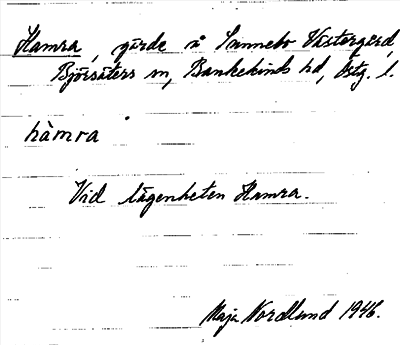 Hamra, gärde å Sannebo Västergård,
Björsäters sn, Bankekinds hd, Östg. l.
hàmra
Vid lägenheten Hamra.
Maja Nordlund 1946.